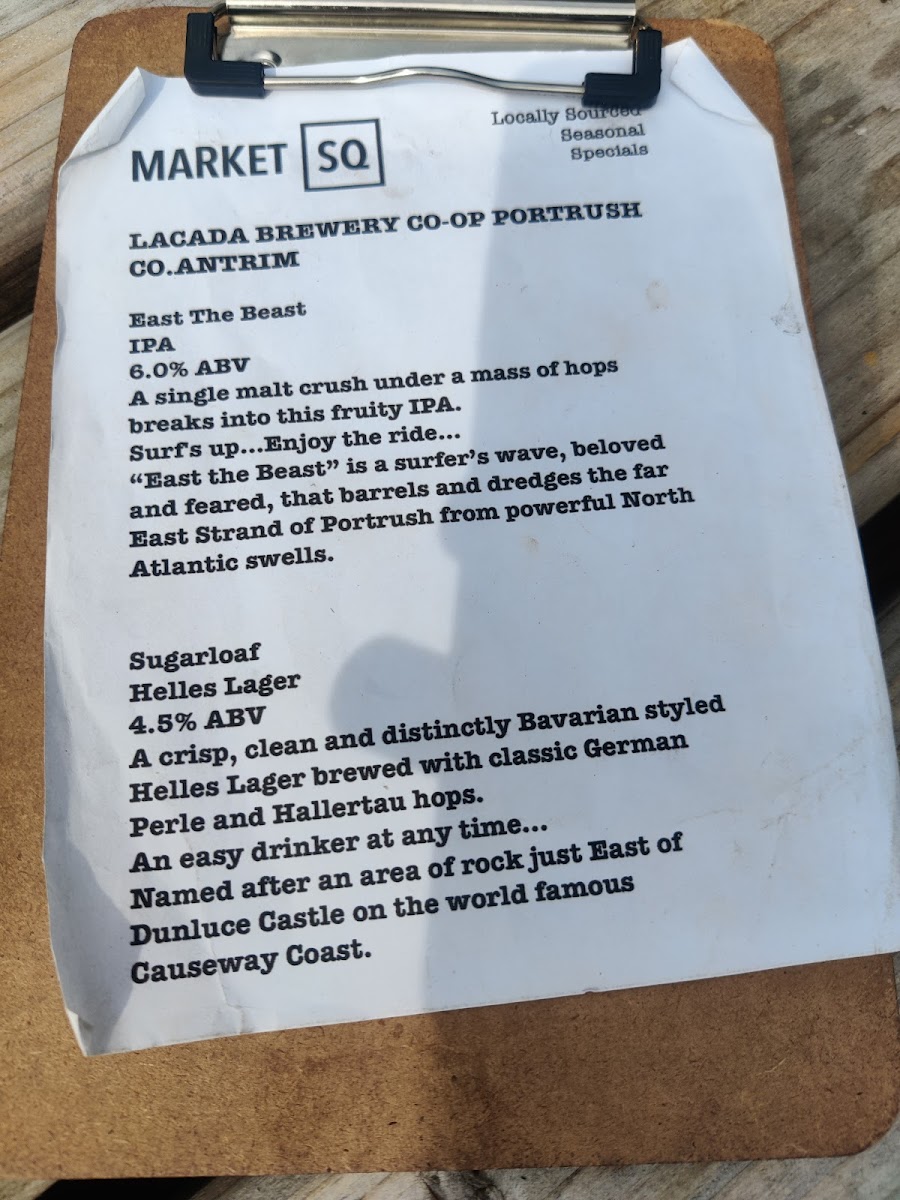 MARKET SQ
Locally Sourced
Seasonal
Specials
LACADA BREWERY CO-OP PORTRUSH
CO.ANTRIM
East The Beast
IPA
6.0% ABV
A single malt crush under a mass of hops
breaks into this fruity IPA.
Surf's up...Enjoy the ride...
“East the Beast” is a surfer’s wave, beloved
and feared, that barrels and dredges the far
East Strand of Portrush from powerful North
Atlantic swells.
Sugarloaf
Helles Lager
4.5% ABV
A crisp, clean and distinctly Bavarian styled
Helles Lager brewed with classic German
Perle and Hallertau hops.
An easy drinker at any time...
Named after an area of rock just East of
Dunluce Castle on the world famous
Causeway Coast.